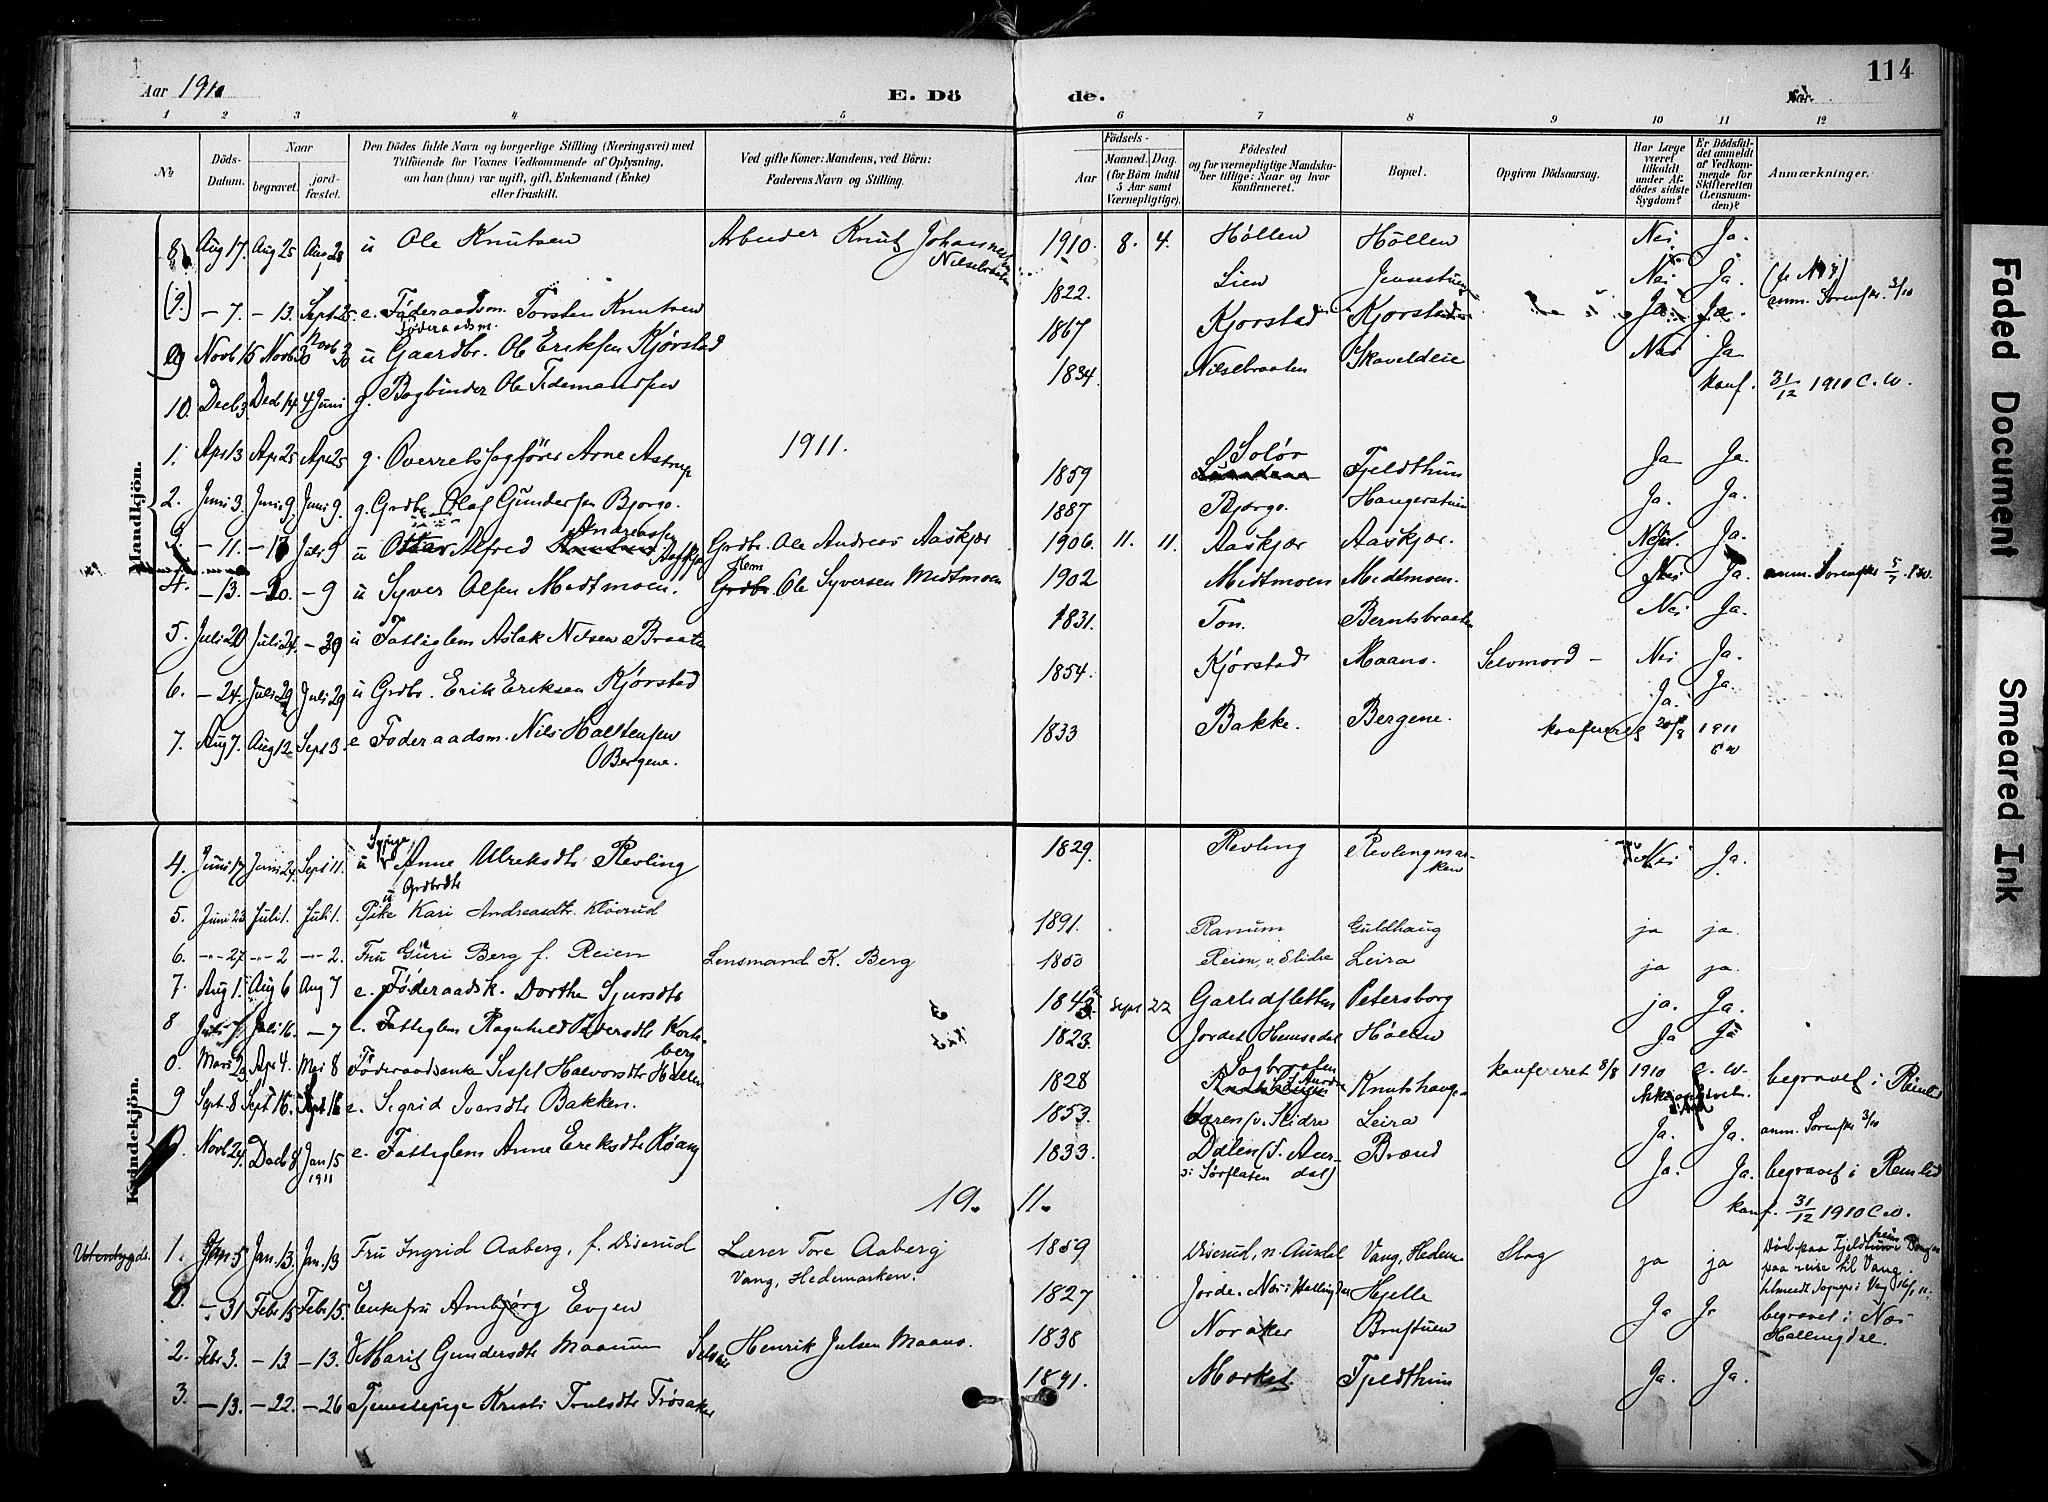 114
Aar 1910
E. Döde.
Aar
1 2 3 4 5 6 7 8 9 10 11 12
No
Döds-Datum.
Naar
begravet.
jord-fæstet.
Den Dödes fulde Navn og borgerlige Stilling (Næringsvei) med
Tilföiende for Voxnes Vedkommende af Oplysning,
om han (hun) var ugift, gift, Enkemand (Enke)
eller fraskilt.
Ved gifte Koner: Mandens, ved Börn:
Faderens Navn og Stilling.
Födsels-
Aar
Maaned. Dag.
(for Börn indtil
5 Aar samt
Værnepligtige).
Födested
og for værnepligtige Mandska-
ber tillige: Naar og hvor
konfirmeret.
Bopæl.
Opgiven Dödsaarsag.
Har Læge
været
tilkaldt
under Af-
dödes sidste
Sygdom?
Er Dödsfal-
det anmeldt
af Vedkom-
mende for
Skifteretten
(Lensman-
den)?
Anmærkninger.
Mandkjön.
8 Aug 17. Aug 25 Aug 28 u Ole Knutsen Arbeider Knut Johannes Nilsebraaten 1910. 8. 4. Höllen Höllen Nei Ja.
(9.) – 7. – 13. Sept 25. e. Föderaadsm. Torsten Knutsen 1822. Lien Nei Ja.
anm. Sorensk. 3/10
Föderaadsm.
9 Novb 15 Novb 30 Novb 30 u Gaardbr. Ole Eriksen Kjørstad 1867 Kjorstad Kjorstad Ja Ja.
10. Decb 3. Decb 14 4 Juni g. Bogbinder Ole Tidemandsen 1834. Nilsebraaten Skaveldeie Nei Ja
konf. 31/12 1910 C. W.
1911.
1. Apr 13 Apr 25 Apr 25 g. Overretssagförer Arne Astrup 1859 Solör Fjeldthun Ja Ja.
2. Juni 3. Juni 9. Juni 9. g. Grdbr. Olaf Gundersen Bjorgo. 1887 Bjorgo. Haugerstuen Ja. Ja.
3. – 11. – 17 Juli 9 u Ottar Alfred Andreassen Aaskjær Grdbr. Ole Andreas Aaskjær 1906. 11. 11. Aaskjær Aaskjær. Nei Ja.
4. – 13. – 20. – 9 u Syver Olsen Midtmoen. Grdbr. Ole Syversen Midtmoen 1902 Midtmoen Midtmoen. Nei Ja. anm. Sorensk. 5/7
5. Juli 20 Juli 24. – 29 u Fattiglem Aslak Nilsen Braaten 1831. Ton. Berntsbraaten Nei Ja.
6. – 24. Juli 29 Juli 29 u Grdbr. Erik Eriksen Kjørstad 1854. Kjörstad Maano. Selvmord – Nei Ja.
7. Aug 7. Aug 12. Sept 3. e Föderaadsm. Nils Halstensen Bergene. 1833 Bakke. Bergene. Ja. Ja.
konfereret 20/8 1911
Kvindekjön.
4. Juni 17 Juni 24. Sept 11. u Anne Ulriksdtr Revling 1829. Revling Revlingmarken Nei Ja.
u Grdbrdtr
5. Juni 23 Juli 1. Juli 1. Pike Kari Andreasdtr. Klövrud 1891. Ranum Guldhaug ja ja.
6. – 27 – 2 – 2. Fru Guri Berg f. Reien Lensmand K. Berg 1850 Reien, v. Slidre Leira ja ja.
7. Aug 1. Aug 6 Aug 7 e. Föderaadsk. Dorthe Sjursdtr 1843 Sept 22 Garlidsletten Petersborg ja. Ja.
8 Juli 7. Juli 16. – 7 e. Fattiglem Ragnhild Iversdtr Korteberg 1823. Jordet Hemsedal Höllen Ja Ja
0. Mars 29 Apr 4. Mai 8 Föderaadsenke Sissel Halvorsdtr Hallen 1828 Sogbrøten Knutshaugen konfereret 8/8 1910 C. W. begravet i Reinlid
9 Sept. 8 Sept 16. Sept 16 e. Sigrid Iversdtr Bakken. 1853. v. Slidre Leira Ja. Ja. anm. Sorensk 3/10
Novb 24. Decb 8 Jan 15 1911 e. Fattiglem Anne Eriksdtr Röang 1833. Dølen (S. Aurdal) Brænd Ja. Ja. begravet i Reinlid
konf. 31/12 1910 C. W.
1911.
Utenbygds. 1. Jan 5 Jan. 13 Jan. 13 Fru Ingrid Aaberg, f. Diserud Lærer Tore Aaberg 1859 Diserud, n. Aurdal Vang, Hedem Slag ja ja Död paa Fjeldheim
Vang, Hedemarken.
paa reise til Vang.
– 31 Febr 15 Febr 15. Enkefru Ambjörg Evjen 1827 Jorde. Nes i Hallingdal Hjelle Ja Ja begravet i Nes
Hallingdal.
2. Febr 3. – 13 – 13. Marit Gundersdtr Maanum Henrik Julsen Maano. 1838 Noraker Brustuen
3. – 13. – 22. – 26 Tjenestepige Kristi Trulsdtr Frösaker 1891. Morket. Fjeldthun Ja. Ja.
Faded Document
Smeared Ink